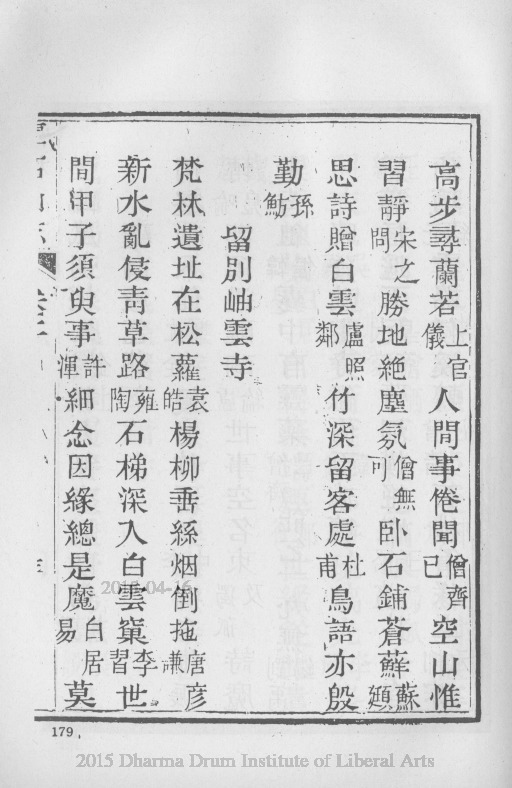 高步尋蘭若上官儀人間事倦聞僧齊已空山惟
習靜宋之問勝地絶塵氛僧無可卧石鋪蒼蘚蘇頲
思詩贈白雲盧照鄰竹深留客處杜甫鳥語亦殷
勤孫魴
留別岫雲寺
梵林遺址在松蘿袁皓楊柳垂絲烟倒拖唐彦謙
新水亂侵青草路雍陶石梯深入白雲窠李習世
間甲子須臾事許渾細念因緣總是魔白居易莫
179
2015 Dharma Drum Institute of Liberal Arts